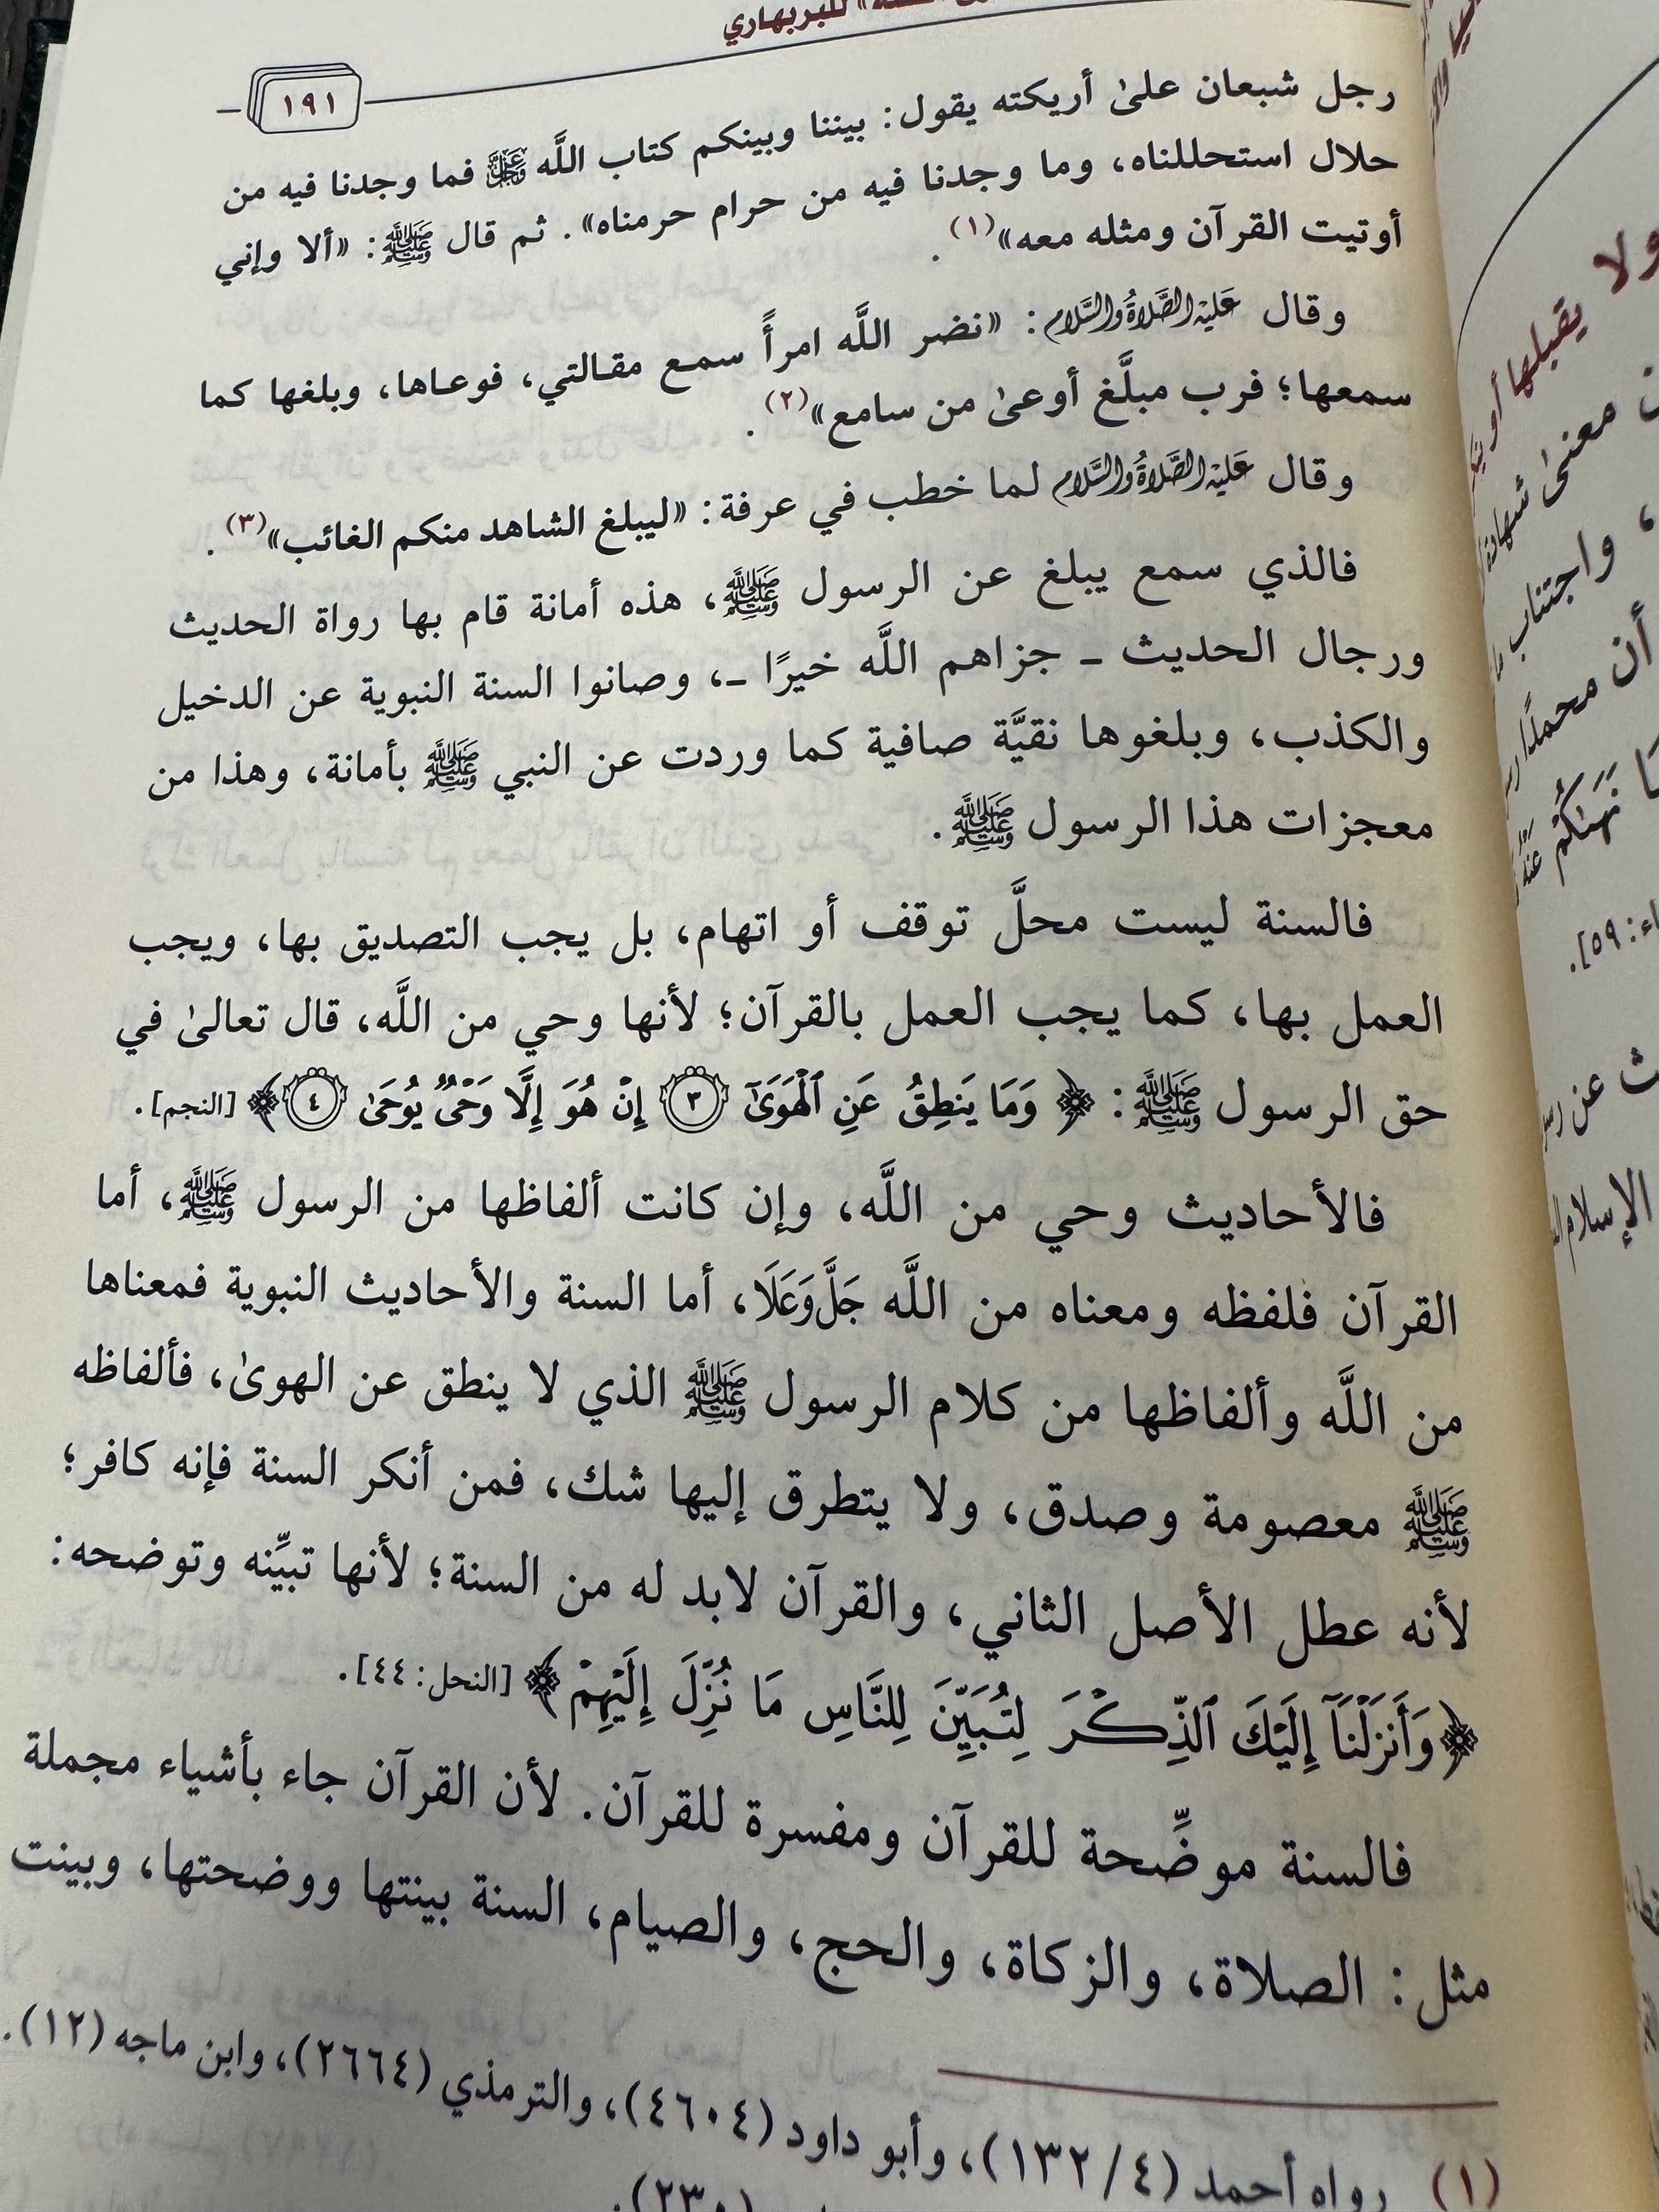 للبربهاري
١٩١
رجل شبعان علىٰ أريكته يقول: بيننا وبينكم كتاب اللَّه عَزَّ وَجَلَّ فما وجدنا فيه من
حلال استحللناه، وما وجدنا فيه من حرام حرمناه». ثم قال ﷺ: «ألا وإني
أوتيت القرآن ومثله معه»(١).
وقال عَلَيْهِ الصَّلَاةُ وَالسَّلَام: «نضر اللَّه امرأً سمع مقالتي، فوعاها، وبلغها كما
سمعها؛ فرب مبلَّغ أوعىٰ من سامع»(٢).
وقال عَلَيْهِ الصَّلَاةُ وَالسَّلَام لما خطب في عرفة: «ليبلغ الشاهد منكم الغائب»(٣).
فالذي سمع يبلغ عن الرسول ﷺ، هذه أمانة قام بها رواة الحديث
ورجال الحديث ـ جزاهم اللَّه خيرًا ـ، وصانوا السنة النبوية عن الدخيل
والكذب، وبلغوها نقيَّة صافية كما وردت عن النبي ﷺ بأمانة، وهذا من
معجزات هذا الرسول ﷺ.
فالسنة ليست محلَّ توقف أو اتهام، بل يجب التصديق بها، ويجب
العمل بها، كما يجب العمل بالقرآن؛ لأنها وحي من اللَّه، قال تعالىٰ في
حق الرسول ﷺ: ﴿وَمَا يَنطِقُ عَنِ ٱلْهَوَىٰٓ ٣ إِنْ هُوَ إِلَّا وَحْىٌ يُوحَىٰ ٤﴾ [النجم].
فالأحاديث وحي من اللَّه، وإن كانت ألفاظها من الرسول ﷺ، أما
القرآن فلفظه ومعناه من اللَّه جَلَّ وَعَلَا، أما السنة والأحاديث النبوية فمعناها
من اللَّه وألفاظها من كلام الرسول ﷺ الذي لا ينطق عن الهوىٰ، فألفاظه
ﷺ معصومة وصدق، ولا يتطرق إليها شك، فمن أنكر السنة فإنه كافر؛
لأنه عطل الأصل الثاني، والقرآن لابد له من السنة؛ لأنها تبيِّنه وتوضحه:
﴿وَأَنزَلْنَآ إِلَيْكَ ٱلذِّكْرَ لِتُبَيِّنَ لِلنَّاسِ مَا نُزِّلَ إِلَيْهِمْ﴾ [النحل: ٤٤].
فالسنة موضِّحة للقرآن ومفسرة للقرآن. لأن القرآن جاء بأشياء مجملة
مثل: الصلاة، والزكاة، والحج، والصيام، السنة بينتها ووضحتها، وبينت
(١) رواه أحمد (٤/ ١٣٢)، وأبو داود (٤٦٠٤)، والترمذي (٢٦٦٤)، وابن ماجه (١٢).
ولا يقبلها أو
معنىٰ شهادة
، واجتناب
أن محمدًا
نَهَىٰكُمْ عَنْهُ
اء: ٥٩].
ث عن
الإسلام